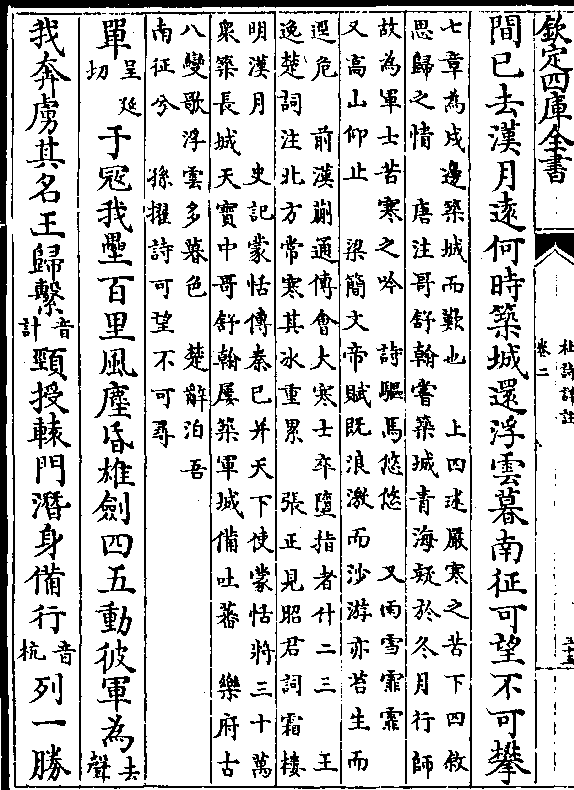 欽定四庫全書
杜詩詳註
卷二
間已去漢月遠何時築城還浮雲暮南征可望不可攀
七章為戍邊築城而歎也　上四述嚴寒之苦下四敘
思歸之情　唐注哥舒翰嘗築城青海疑於冬月行師
故為軍士苦寒之吟　詩驅馬悠悠　又雨雪霏霏
又高山仰止　梁簡文帝賦既浪激而沙游亦苔生而
逕危　前漢蒯通傳會大寒士卒墮指者什二三　王
逸楚詞注北方常寒其冰重累　張正見昭君詞霜樓
明漢月　史記蒙恬傳秦已并天下使蒙恬將三十萬
衆築長城天寶中哥舒翰屢築軍城備吐蕃　樂府古
八變歌浮雲多暮色　楚辭泊吾
南征兮　孫擢詩可望不可尋
單呈延切于寇我壘百里風塵昏雄劍四五動彼軍為去聲
我奔虜其名王歸繫音計頸授轅門潛身備行音杭列一勝